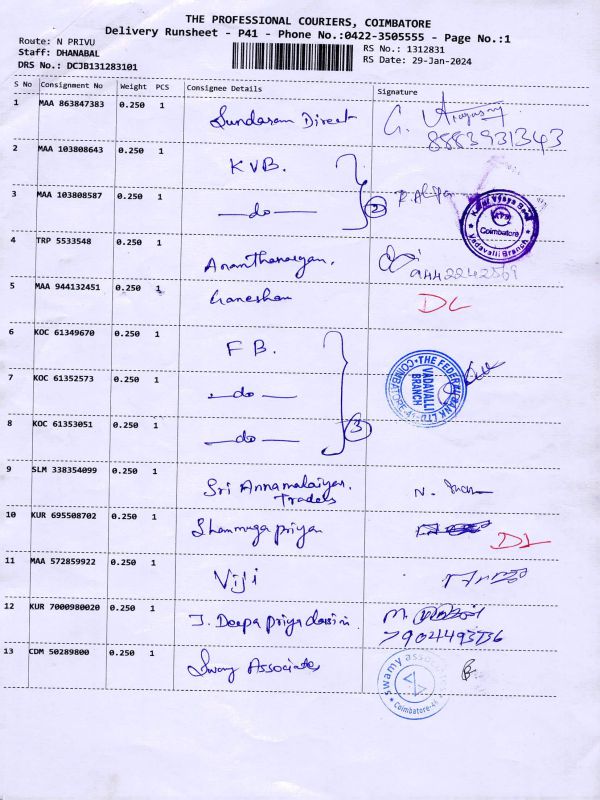 THE PROFESSIONAL COURIERS, COIMBATORE
Delivery Runsheet - P41 - Phone No.:0422-3505555 - Page No.:1
Route: N PRIVU
Staff: DHANABAL
DRS No.: DCJB131283101
RS No.: 1312831
RS Date: 29-Jan-2024
S No Consignment No Weight PCS Consignee Details Signature
1 MAA 863847383 0.250 1 Sundaram Direct G.
8883931343
2 MAA 103808643 0.250 1 KVB.
3 MAA 103808587 0.250 1 —do— 2
Karur Vysya Bank
Coimbatore
Vadavalli Branch
4 TRP 5533548 0.250 1 Ananthanarayan. 9442242569
5 MAA 944132451 0.250 1 Ganeshan DL
6 KOC 61349670 0.250 1 FB.
7 KOC 61352573 0.250 1 —do—
THE FEDERAL BANK LTD
VADAVALLI
BRANCH
COIMBATORE-41
8 KOC 61353051 0.250 1 —do— 3
9 SLM 338354099 0.250 1 Sri Annamalaiyar. N.
Traders
10 KUR 695508702 0.250 1 Shanmuga priyan DL
11 MAA 572859922 0.250 1 Viji
12 KUR 7000980020 0.250 1 J. Deepa priyadarsini M.
7904493736
13 CDM 50289800 0.250 1 Swamy Associates B.
swamy associates
Coimbatore-41